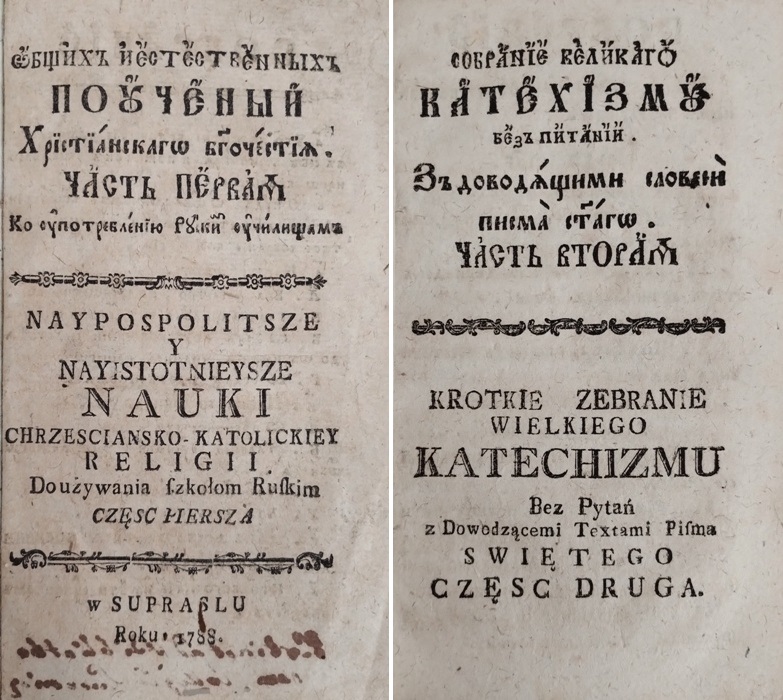 Ѡ҆бщихъ и҆ є҆стєствєнныхъ
ПОꙊЧЄНЫЙ
Хрїстїа́нскагѡ бг҃оче́стїѧ.
ЧА́СТЬ ПЕ́РВАѦ
Ко ᲂу҆потреблє́нїю Рꙋ́ски ᲂу҆чи́лищамъ
NAYPOSPOLITSZE
Y
NAYISTOTNIEYSZE
NAUKI
CHRZESCIANSKO-KATOLICKIEY
RELIGII.
Do używania ſzkołom Ruſkim
CZĘSC PIERSZA
w SUPRASLU
Roku 1788.
СОБРА́НЇЄ ВЄЛИ́КАГѠ
КАТЄХЇ́ЗМꙊ
БЄЗЪ ПИТА́НЇЙ.
Зъ доводѧ́щими словесы̀
писма̀ ст҃а́гѡ.
ЧА́СТЬ ВТОРА́Ѧ
KROTKIE ZEBRANIE
WIELKIEGO
KATECHIZMU
Bez Pytań
z Dowodzącemi Textami Piſma
SWIĘTEGO
CZĘSC DRUGA.